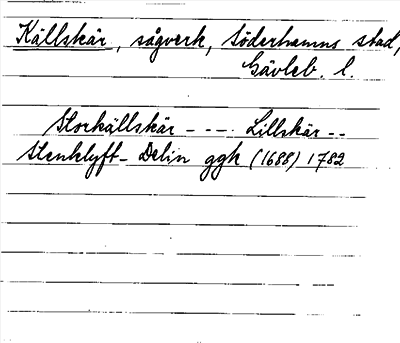 Källskär, sågverk, Söderhamns stad,
Gävleb. l.
Storkällskär - - - Lillskär - -
Stenklyft - Delin ggk (1688) 1782